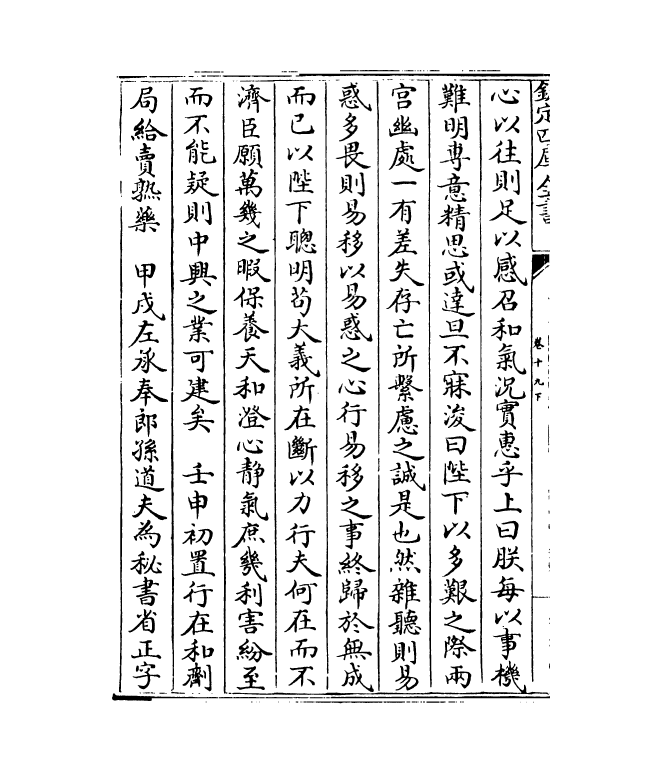 欽定四庫全書
卷十九下
心以往則足以感召和氣況實惠乎上曰朕每以事機
難明専意精思或達旦不寐浚曰陛下以多艱之際兩
宫幽處一有差失存亡所繫慮之誠是也然雜聽則易
惑多畏則易移以易惑之心行易移之事終歸於無成
而已以陛下聰明苟大義所在斷以力行夫何在而不
濟臣願萬幾之暇保養天和澄心静氣庶幾利害紛至
而不能疑則中興之業可建矣　壬申初置行在和劑
局給賣熟藥　甲戌左承奉郎孫道夫為秘書省正字